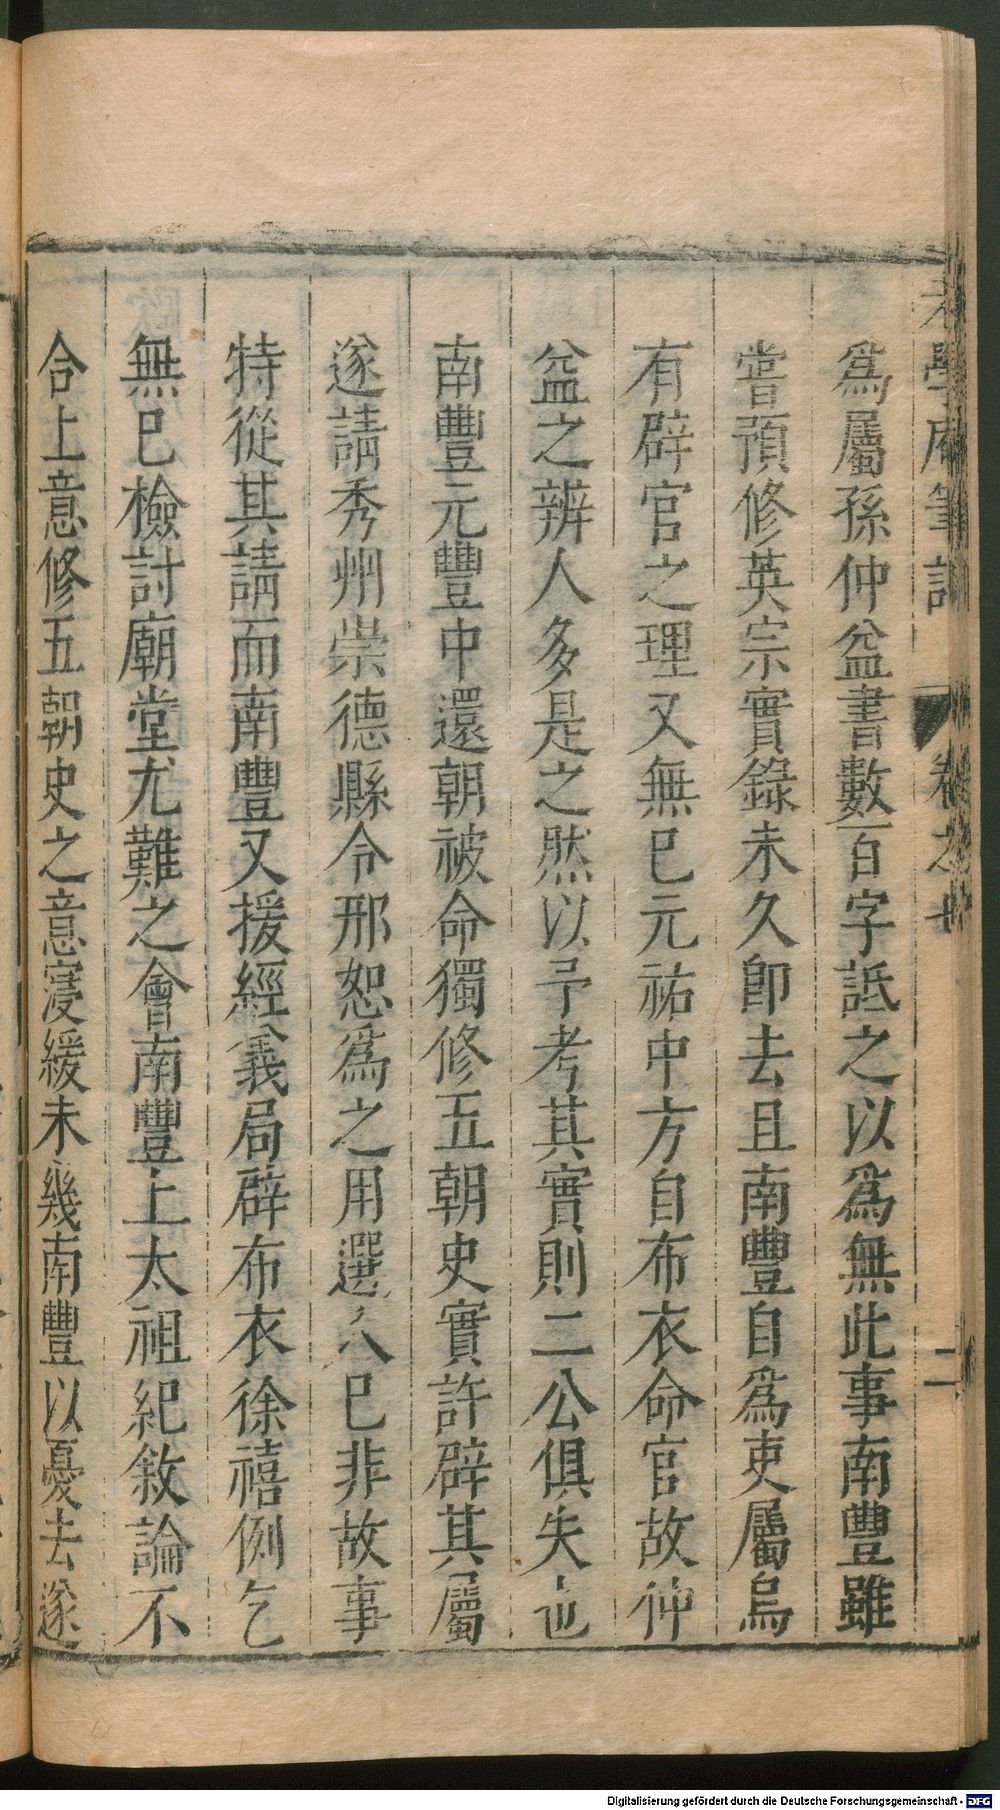 老學庵筆記 卷之七 二
爲屬孫仲益書數百字詆之以爲無此事南豐雖
嘗預修英宗實錄未久卽去且南豐自爲吏屬烏
有辟官之理又無已元祐中方自布衣命官故仲
益之辨人多是之然以予考其實則二公俱失也
南豐元豐中還朝被命獨修五朝史實許辟其屬
遂請秀州崇德縣令邢恕爲之用選人已非故事
特從其請而南豐又援經義局辟布衣徐禧例乞
無已檢討廟堂尤難之會南豐上太祖紀敘論不
合上意修五朝史之意寖緩未幾南豐以憂去遂
Digitalisierung gefördert durch die Deutsche Forschungsgemeinschaft - DFG